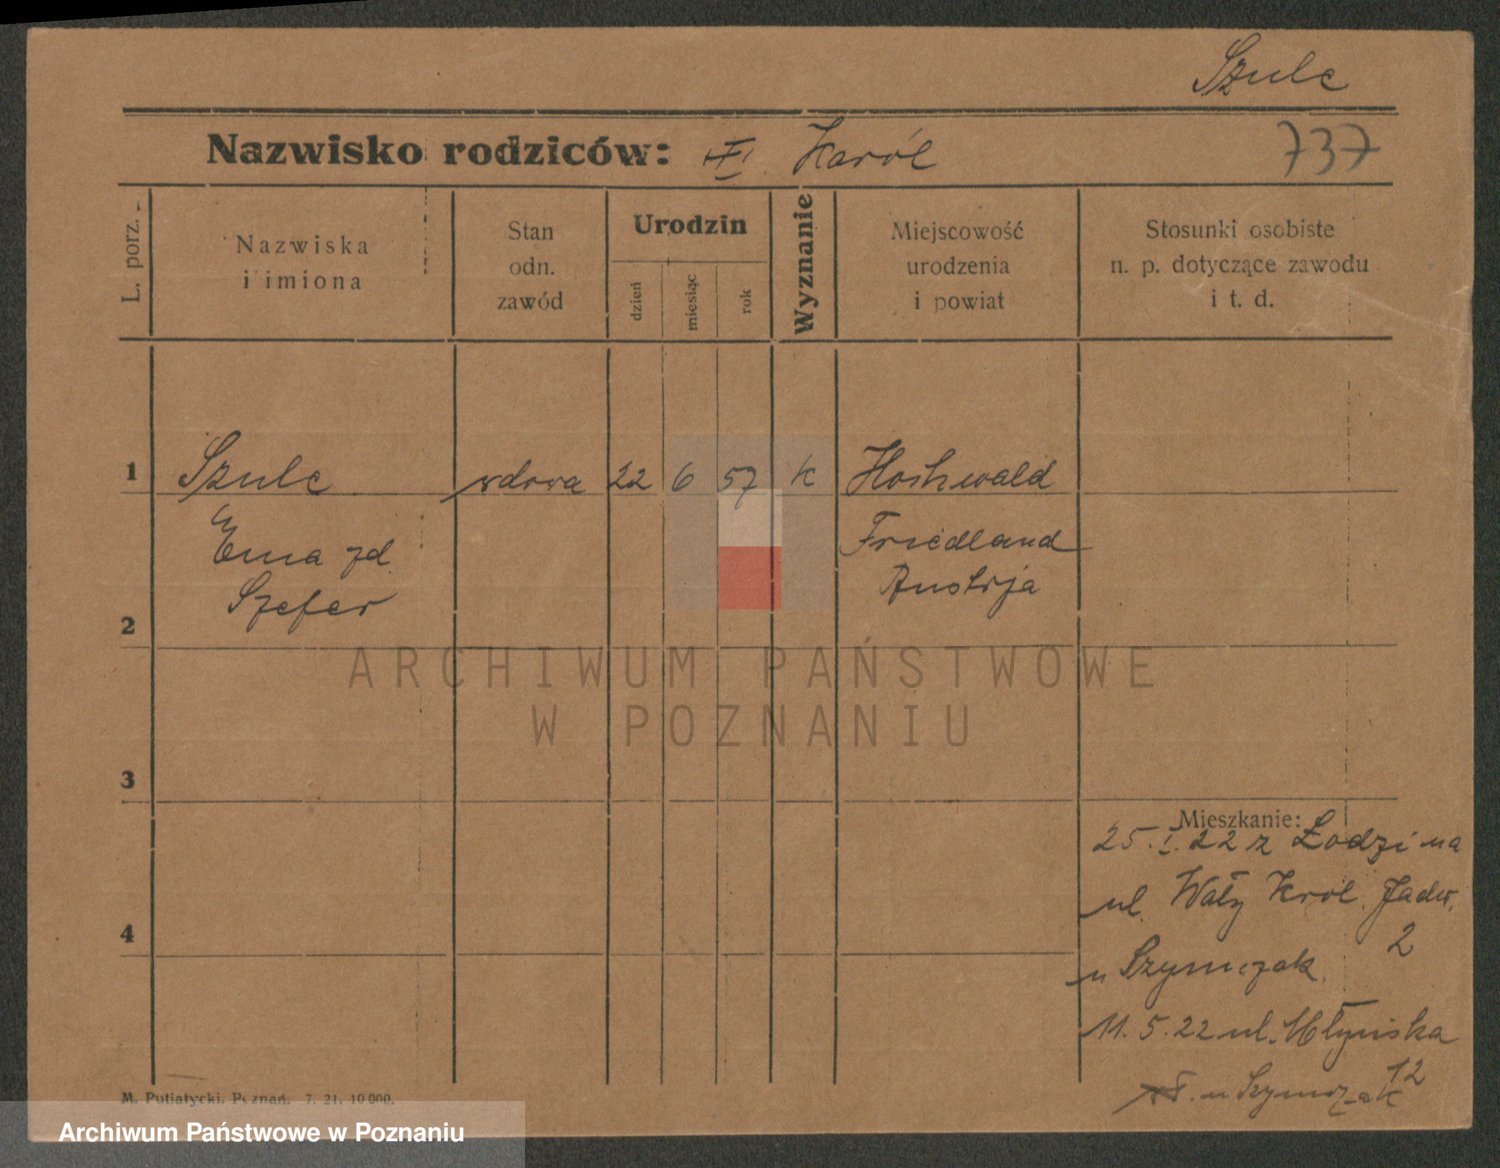 Szulc
Nazwisko rodziców: Karól 737
L. porz.
Nazwiska
i imiona
Stan
odn.
zawód
Urodzin
dzień
miesiąc
rok
Wyznanie
Miejscowość
urodzenia
i powiat
Stosunki osobiste
n. p. dotyczące zawodu
i t. d.
1 Szulc wdowa 22 6 57 k Hochwald
Ema zd Friedland
Szefer Austrja
2
ARCHIWUM PAŃSTWOWE
W POZNANIU
3
Mieszkanie:
25.I.22 z Łodzi na
ul. Wały Krol. Jadw.
2
4
u Szymczak
11.5.22 ul. Młyńska
12
u Szymczak
M. Putiatycki, Poznań. 7. 21. 10 000.
Archiwum Państwowe w Poznaniu